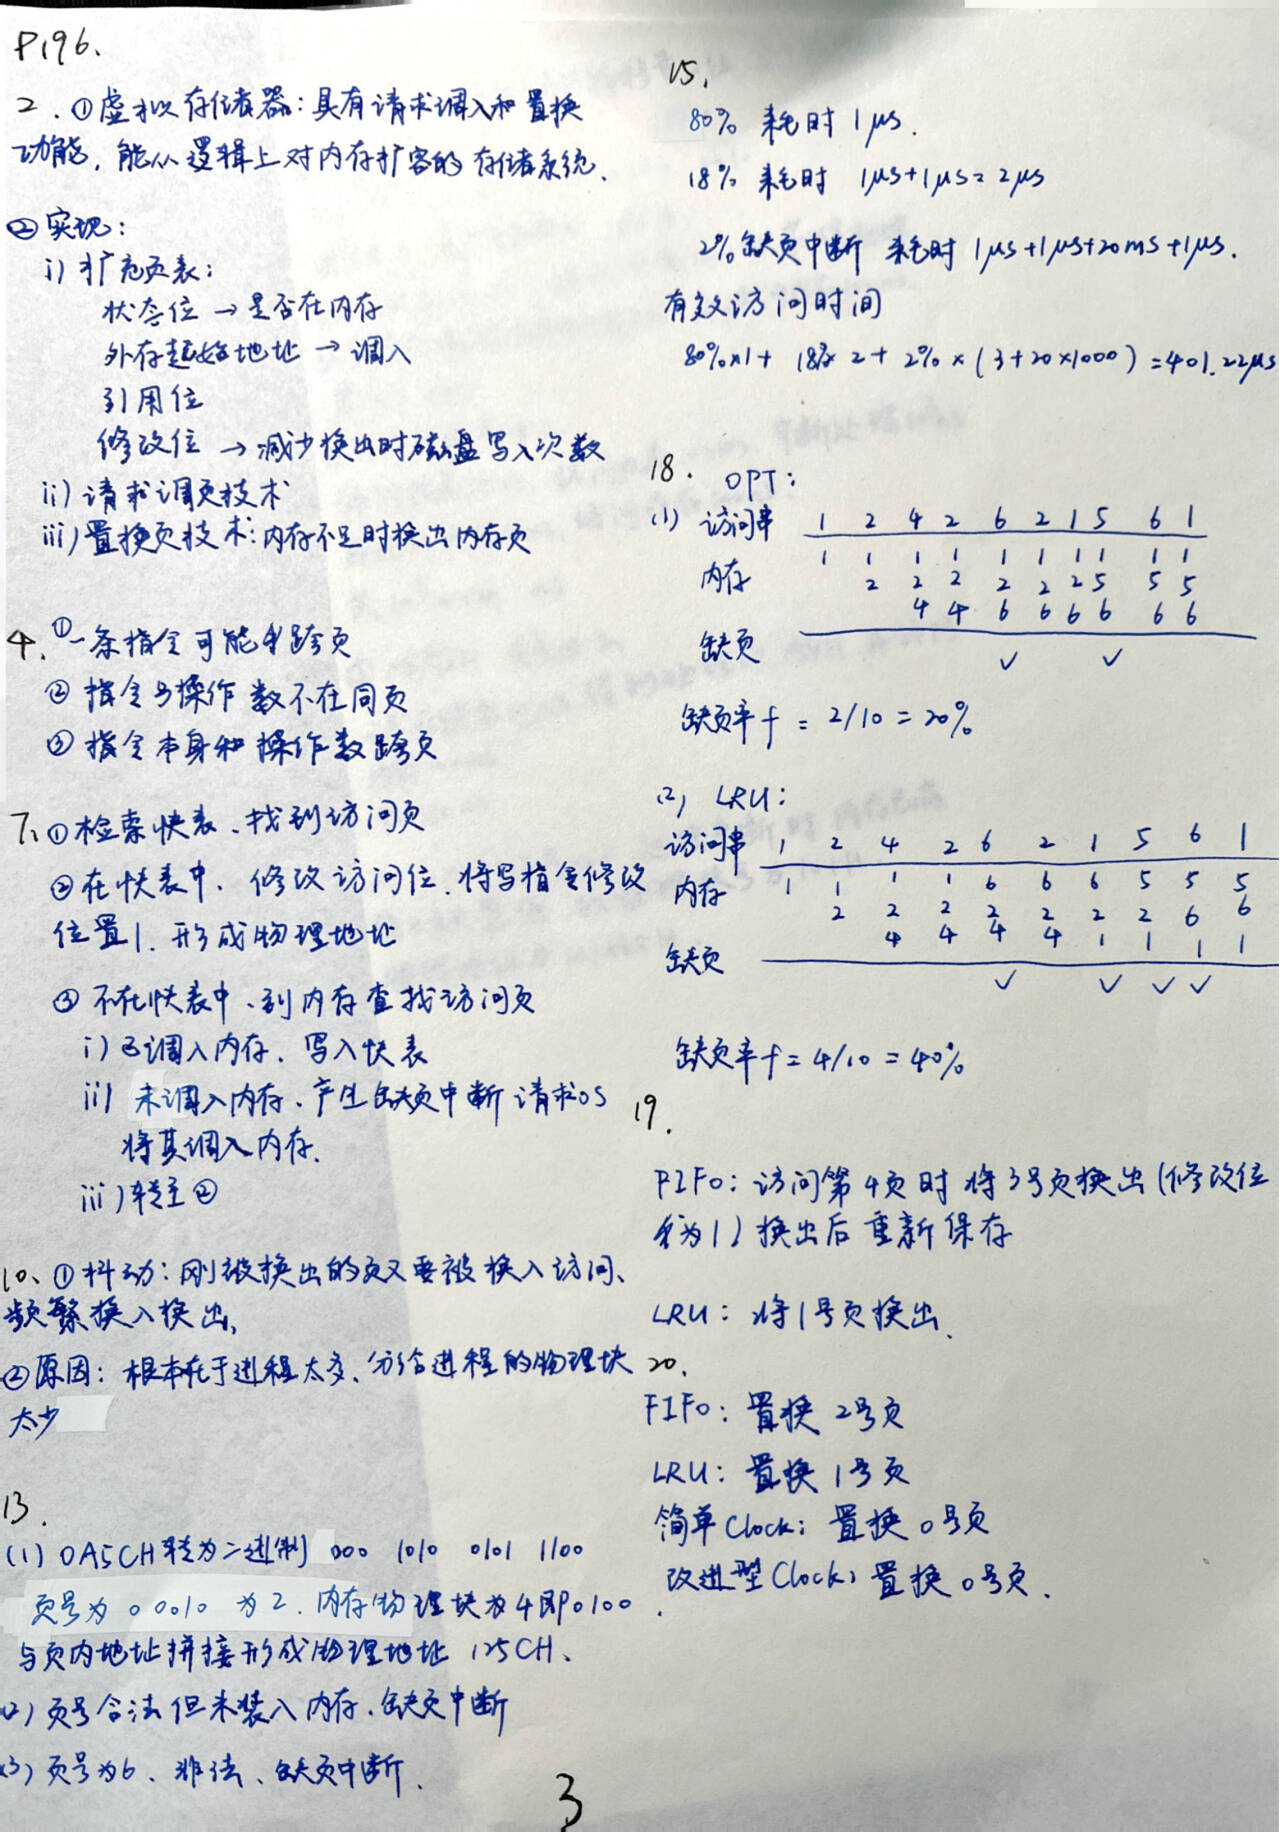 P196.
2. ①虚拟存储器:具有请求调入和置换
功能,能从逻辑上对内存扩容的存储系统.
②实现:
i) 扩充页表:
状态位 → 是否在内存
外存起始地址 → 调入
引用位
修改位 → 减少换出时磁盘写入次数
ii) 请求调页技术
iii) 置换页技术:内存不足时换出内存页
4. ①一条指令可能跨页
② 指令与操作数不在同页
③ 指令本身和操作数跨页
7、①检索快表、找到访问页
②在快表中、修改访问位.将写指令修改
位置1.形成物理地址
③ 不在快表中、到内存查找访问页
i) 已调入内存、写入快表
ii) 未调入内存、产生缺页中断请求OS
将其调入内存.
iii) 转至②
10、①抖动:刚被换出的页又要被换入访问、
频繁换入换出,
②原因:根本在于进程太多、分给进程的物理块
太少
13.
(1) 0A5CH转为二进制 000 1010 0101 1100
页号为 00010 为2.内存物理块为4即0100.
与页内地址拼接形成物理地址 125CH、
(2) 页号合法但未装入内存.缺页中断
(3) 页号为6、非法、缺页中断.
3
15.
80% 耗时 1μs.
18% 耗时 1μs+1μs=2μs
2%缺页中断 耗时 1μs+1μs+20ms+1μs.
有效访问时间
80%×1+ 18%× 2+ 2%×(3+20×1000)=401.22μs
18. OPT:
(1) 访问串 1 2 4 2 6 2 1 5 6 1
1 1 1 1 1 1 1 1 1 1
内存 2 2 2 2 2 2 5 5 5
4 4 6 6 6 6 6 6
缺页 ✓ ✓
缺页率f = 2/10 = 20%
(2) LRU:
访问串 1 2 4 2 6 2 1 5 6 1
内存 1 1 1 1 6 6 6 5 5 5
2 2 2 2 2 2 2 6 6
4 4 4 4 1 1 1 1
缺页 ✓ ✓ ✓ ✓
缺页率f= 4/10 = 40%
19.
FIFO: 访问第4页时将3号页换出(修改位
为1)换出后重新保存
LRU: 将1号页换出.
20.
FIFO: 置换 2号页
LRU: 置换 1号页
简单Clock: 置换 0号页
改进型Clock: 置换 0号页.